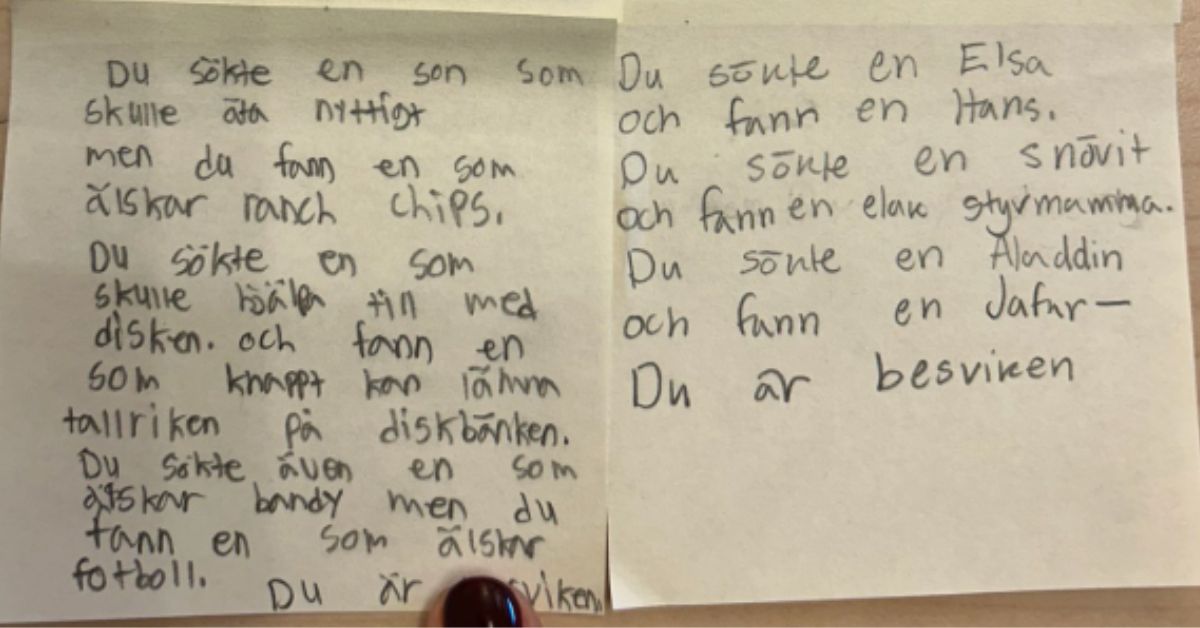 Du sökte en son som
skulle äta nyttigt
men du fann en som
älskar ranch chips.
Du sökte en som
skulle hjälpa till med
disken. och fann en
som knappt kan lämna
tallriken på diskbänken.
Du sökte även en som
älskar bandy men du
fann en som älskar
fotboll.
Du är viken.
Du sökte en Elsa
och fann en Hans.
Du sökte en snövit
och fann en elak styvmamma.
Du sökte en Aladdin
och fann en Jafar—
Du är besviken